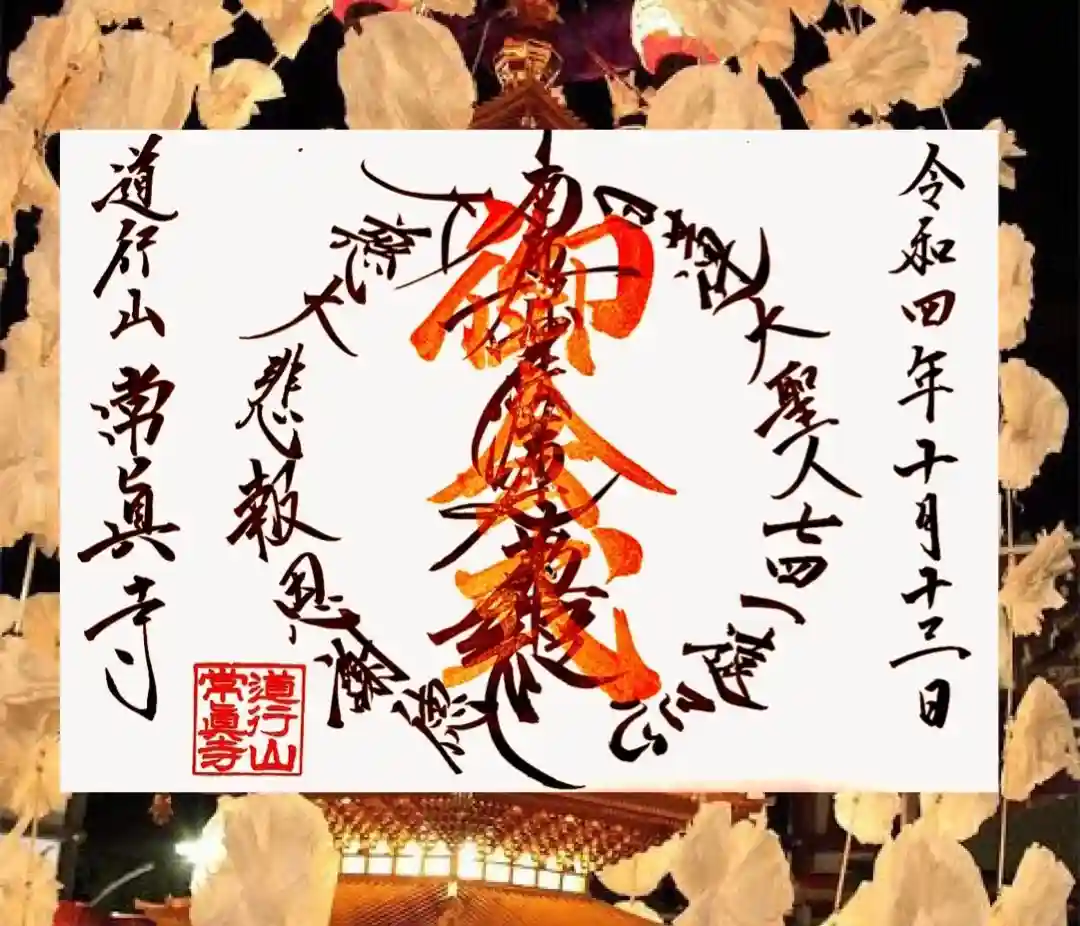 令和四年十月十三日
日蓮大聖人七四一遠忌
南無妙法蓮華経
御会式
大慈大悲報恩謝徳
道行山 常眞寺
道行山
常眞寺